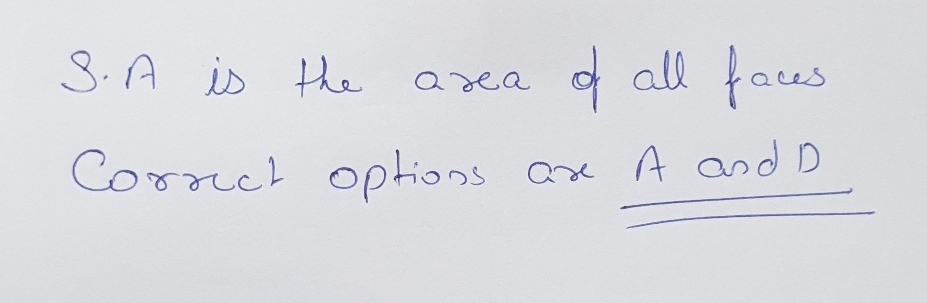 S.A is the area of all faces
Correct options are A and D